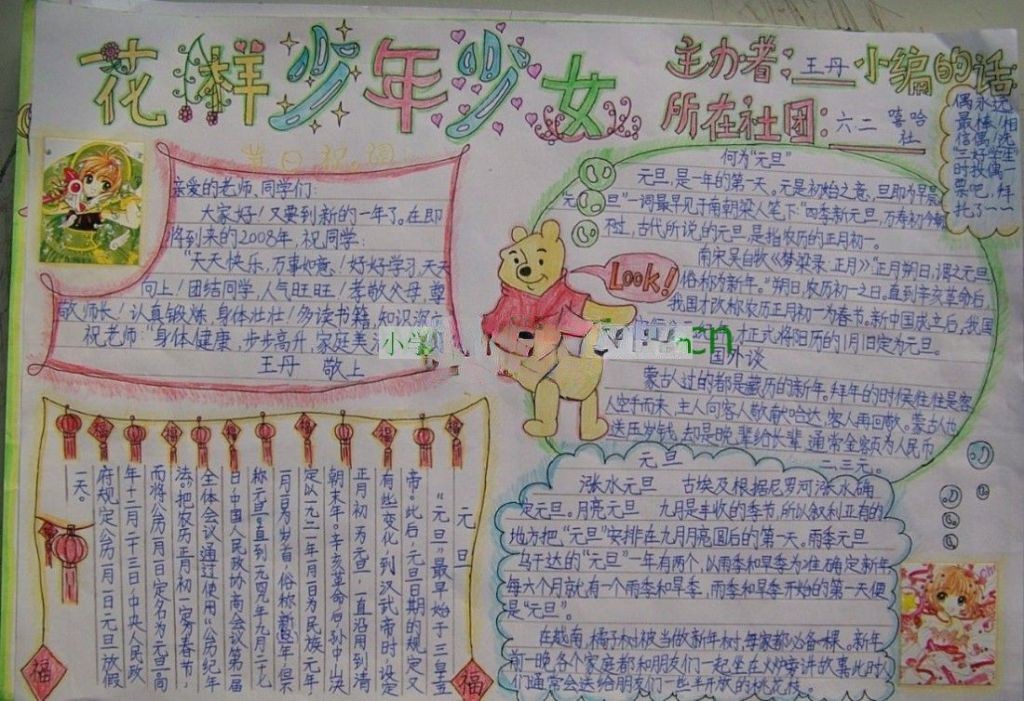 花样少年少女
主办者：王丹
所在社团：六二 嘻哈社
小编的话
偶永远
最棒！相
信偶！选
三好学生
时投偶一
票吧，拜
托了~~
节日祝词
亲爱的老师，同学们：
大家好！又要到新的一年了。在即
将到来的2008年，祝同学：
“天天快乐，万事如意！好好学习，天天
向上！团结同学，人气旺旺！孝敬父母，尊
敬师长！认真锻炼，身体壮壮！多读书籍，知识
祝老师：“身体健康，步步高升，家庭美
王丹 敬上
何为“元旦”
元旦，是一年的第一天。元是初始之意，旦即为早晨
“元旦”一词最早见于南朝梁人笔下“四季新元旦，万寿初今朝
不过，古代所说的元旦，是指农历的正月初一。
南宋吴自牧《梦梁录·正月》“正月朔日，谓之元旦
俗称为新年。”朔日，农历初一之日。直到辛亥革命后，
我国才改称农历正月初一为春节。新中国成立后，我国
才正式将阳历的1月1日定为元旦。
Look!
国外谈
蒙古人过的都是藏历的新年。拜年的时候往往是客
人空手而来，主人向客人敬献哈达，客人再回敬。蒙古人也
送压岁钱，却是晚辈给长辈，通常金额为人民币
二、三元。
小学
cn
元旦
“元旦”最早始于三皇五
帝。此后，元旦日期的规定又
有些变化，到汉武帝时设定
正月初一为元旦，一直沿用到清
朝末年。辛亥革命后，孙中山决
定以一九一二年一月一日为民族元年
一月一日为岁首，俗称新年，但不
称元旦。直到一九四九年九月二十七
日，中国人民政协商会议第一届
全体会议通过使用“公历纪年
法”，把农历正月初一定为春节，
而将公历一月一日定名为元旦。一九四九
年十二月二十三日，中央人民政
府规定公历一月一日元旦放假
一天。
福
福
元旦
涨水元旦 古埃及根据尼罗河涨水确
定元旦。月亮元旦 九月是丰收的季节，所以叙利亚有的
地方把“元旦”安排在九月月亮圆后的第一天。雨季元旦
乌干达的“元旦”一年有两个，以雨季和旱季为准确定新年
每六个月就有一个雨季和旱季，雨季和旱季开始的第一天便
是“元旦”。
在越南，橘子树被当做新年树，每家都必备一棵。新年
前一晚，各个家庭都和朋友们一起坐在火炉旁讲故事，此时人
们通常会送给朋友们一些半开放的桃花枝。